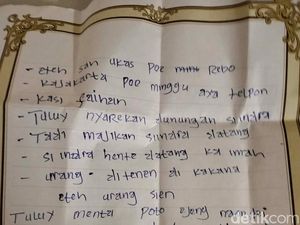 - eteh san ukas poe Rebo
kajakarta poe minggu aya telpon
- kasi faihan
- Tuluy nyarekan dunungan si indra
- Tadi majikan si indra datang
- si indra hente datang ka imah
- urang di tenen di kakana
eteh urang sien
Tuluy menta poto
detikcom